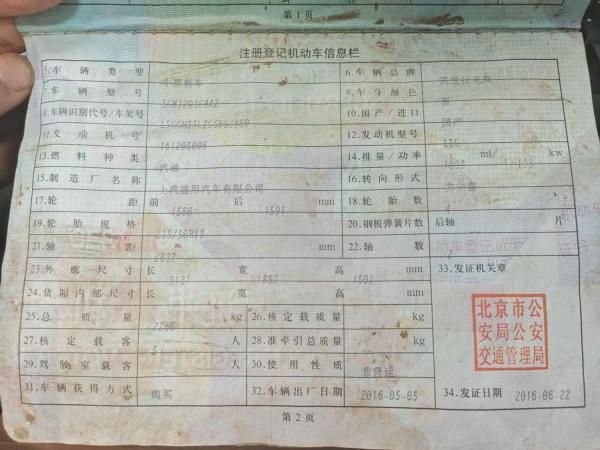 第1页
注册登记机动车信息栏
5.车辆类型 小型轿车 6.车辆品牌
7.车辆型号 8.车身颜色 黑
9.车辆识别代号/车架号 10.国产/进口 国产
11.发动机号 161205006 12.发动机型号 LTG
13.燃料种类 汽油 14.排量/功率 1998 ml/ kw
15.制造厂名称 上汽通用汽车有限公司 16.转向形式 方向盘
17.轮距 前 1580 后 1591 mm 18.轮胎数 4
19.轮胎规格 235/50R18 20.钢板弹簧片数 后轴 片
21.轴距 2837 mm 22.轴数 2
23.外廓尺寸 长 5131 宽 1852 高 1502 mm 33.发证机关章
24.货厢内部尺寸 长 宽 高 mm
25.总质量 2260 kg 26.核定载质量 kg
27.核定载客 5 人 28.准牵引总质量 kg
29.驾驶室载客 人 30.使用性质 非营运
31.车辆获得方式 购买 32.车辆出厂日期 2016-05-05 34.发证日期 2016-06-22
北京市公
安局公安
交通管理局
第2页